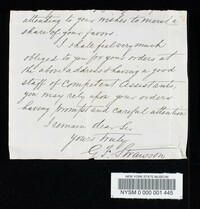 attending to your wishes to merit a
share of your favors.
I shall feel very much
obliged to you for your orders at
the above address & having a good
staff of Competent Assistants,
you may rely upon your orders
having prompt and careful attention
I remain dear Sir
yours truly
G F Strawson
NEW YORK STATE MUSEUM
NYSM 0 000 001 445